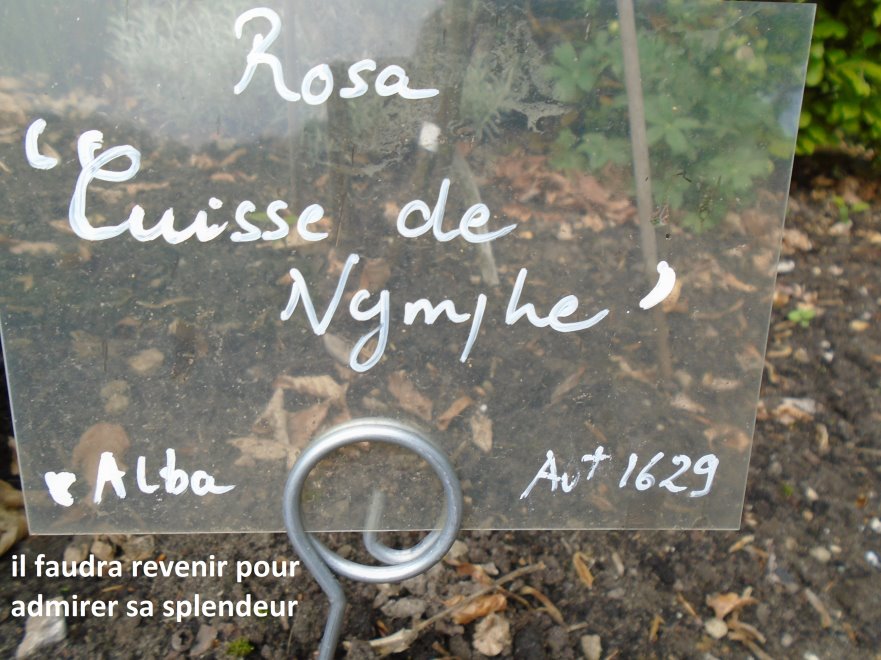 Rosa
‘Cuisse de
Nymphe’
Alba
Avt 1629
il faudra revenir pour
admirer sa splendeur